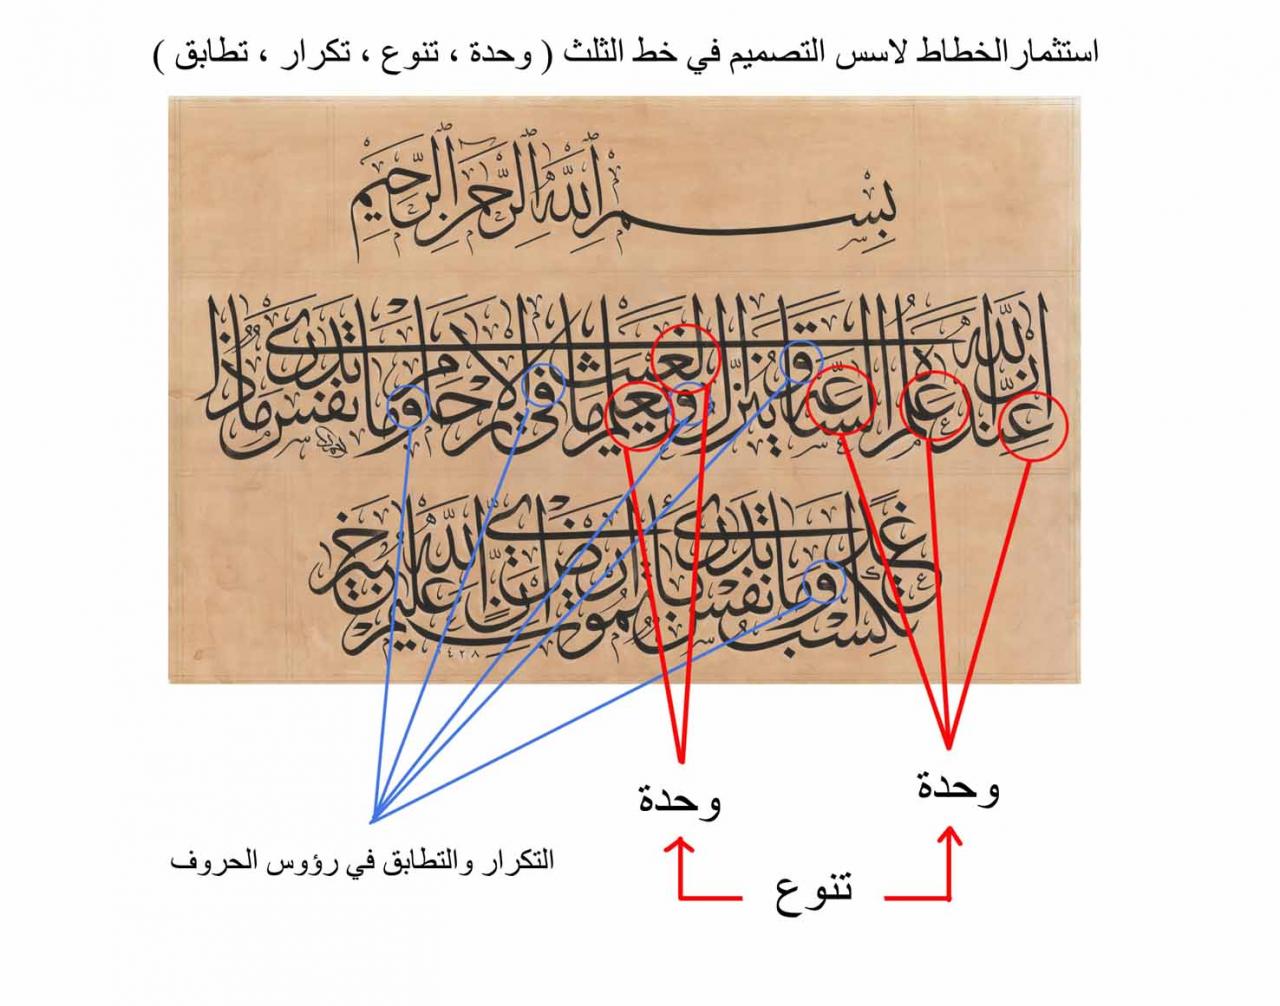 استثمار الخطاط لاسس التصميم في خط الثلث ( وحدة ، تنوع ، تكرار ، تطابق )
بسم الله الرحمن الرحيم
ان الله عنده علم الساعة وينزل الغيث ويعلم ما في الارحام وما تدرى نفس ماذا
تكسب غدا وما تدرى نفس بأى ارض تموت ان الله عليم خبير
١٤٢٨
وحدة
وحدة
التكرار والتطابق في رؤوس الحروف
تنوع